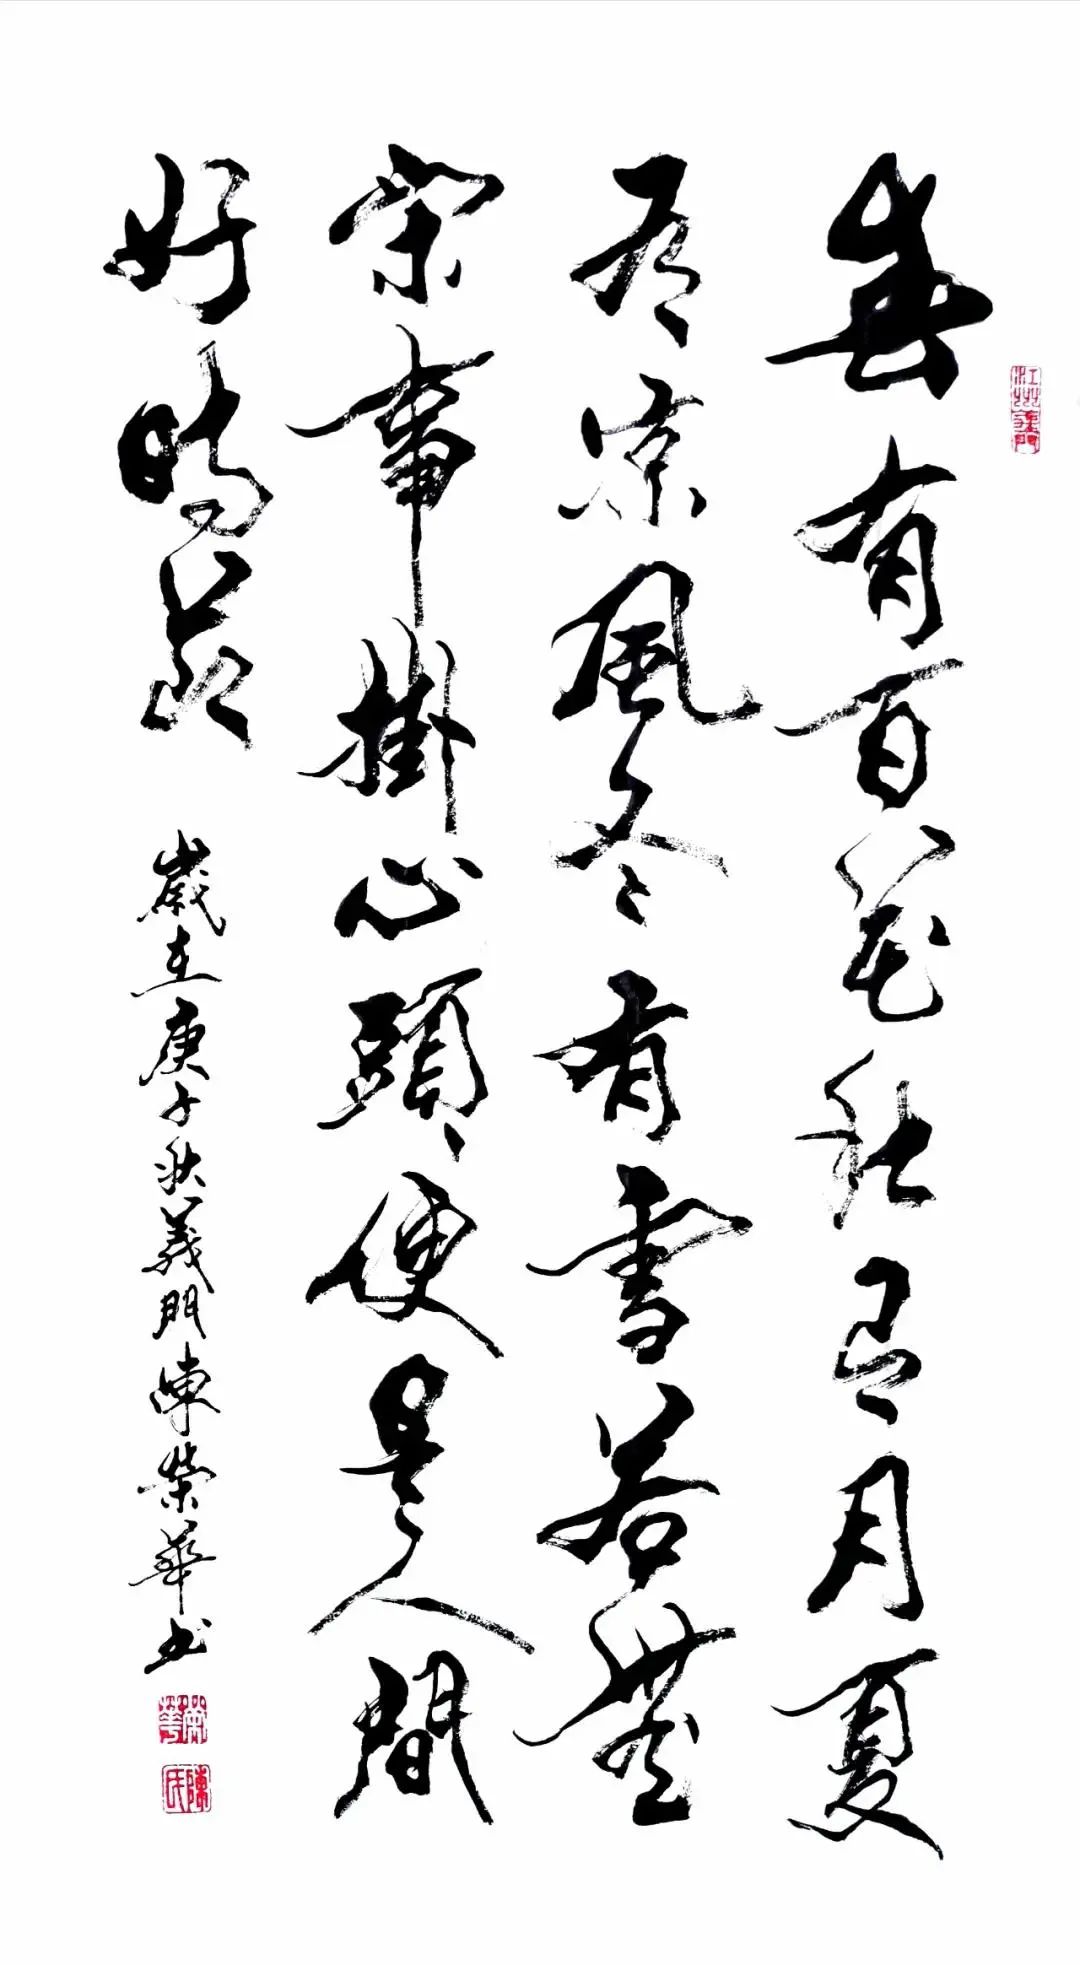 春有百花秋有月夏
有涼風冬有雪若無
閑事掛心頭便是人間
好時節
歲在庚子秋義門陳榮華書
江州義門
榮華
陳氏